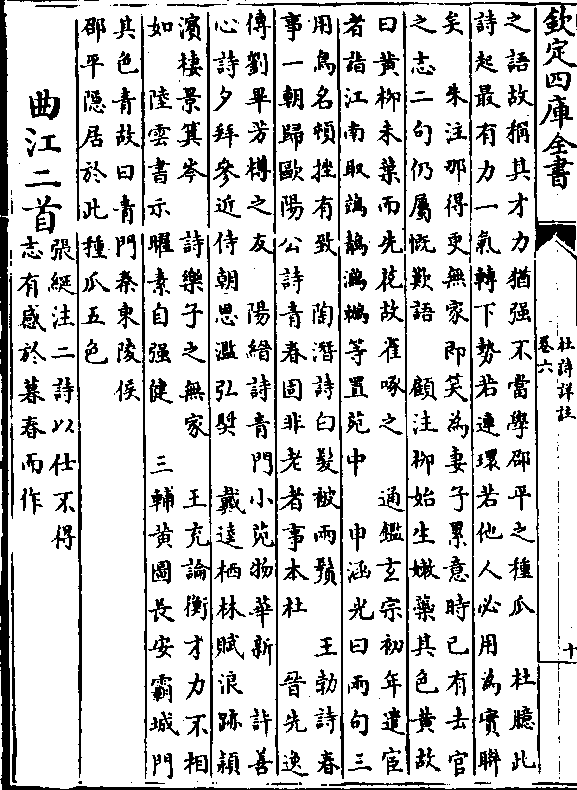 欽定四庫全書
杜詩詳註
卷六
十
之語故稱其才力猶强不當學邵平之種瓜　杜臆此
詩起最有力一氣轉下勢若連環若他人必用為實聯
矣　朱注那得更無家即笑為妻子累意時已有去官
之志二句仍屬慨歎語　顧注栁始生嫩蘂其色黄故
曰黄栁未葉而先花故雀啄之　通鑑玄宗初年遣宦
者詣江南取鵁鶄鸂鶒等置苑中　申涵光曰兩句三
用鳥名頓挫有致　陶潛詩白髮被兩鬢　王勃詩春
事一朝歸歐陽公詩青春固非老者事本杜　晉先逸
傳劉畢芳樽之友　陽縉詩青門小苑物華新　許善
心詩夕拜參近侍朝思濫弘奬　戴逵栖林賦浪跡潁
濱棲景箕岑　詩樂子之無家　王充論衡才力不相
如　陸雲書示曜素自强健　三輔黄圖長安霸城門
其色青故曰青門秦東陵侯
邵平隱居於此種瓜五色
曲江二首
張綖注二詩以仕不得
志有感於暮春而作